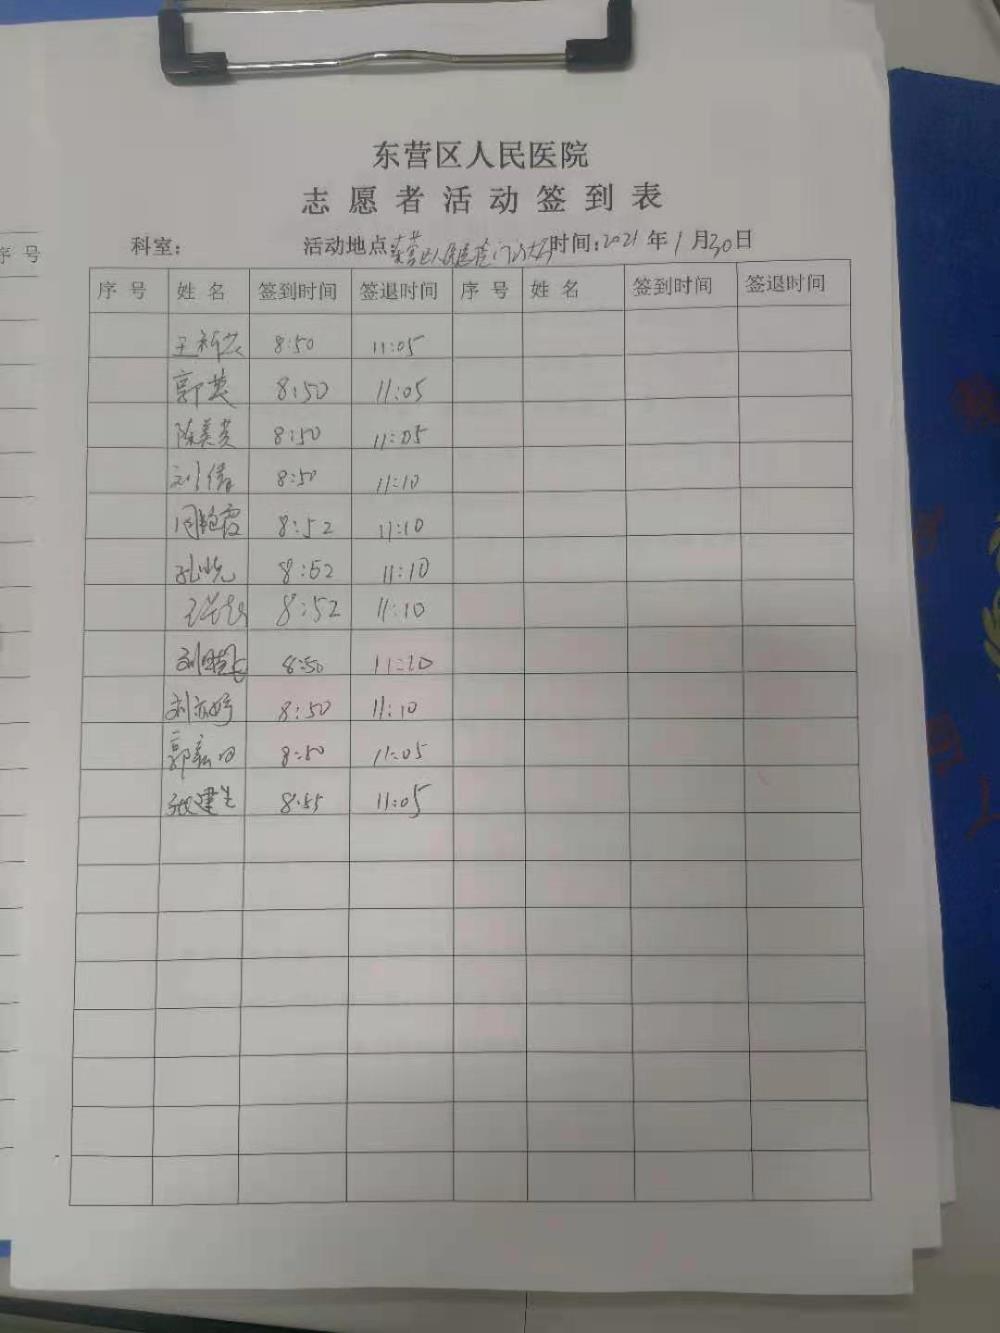 东营区人民医院
志愿者活动签到表
科室： 活动地点：东营区人民医院门诊大厅 时间：2021年1月30日
序号 姓名 签到时间 签退时间 序号 姓名 签到时间 签退时间
王新芸 8:50 11:05
郭英 8:50 11:05
陈美英 8:50 11:05
刘倩 8:50 11:10
周艳霞 8:52 11:10
孔晓 8:52 11:10
8:52 11:10
刘 8:50 11:10
刘亦婷 8:50 11:10
郭 8:50 11:05
张建生 8:55 11:05
序号